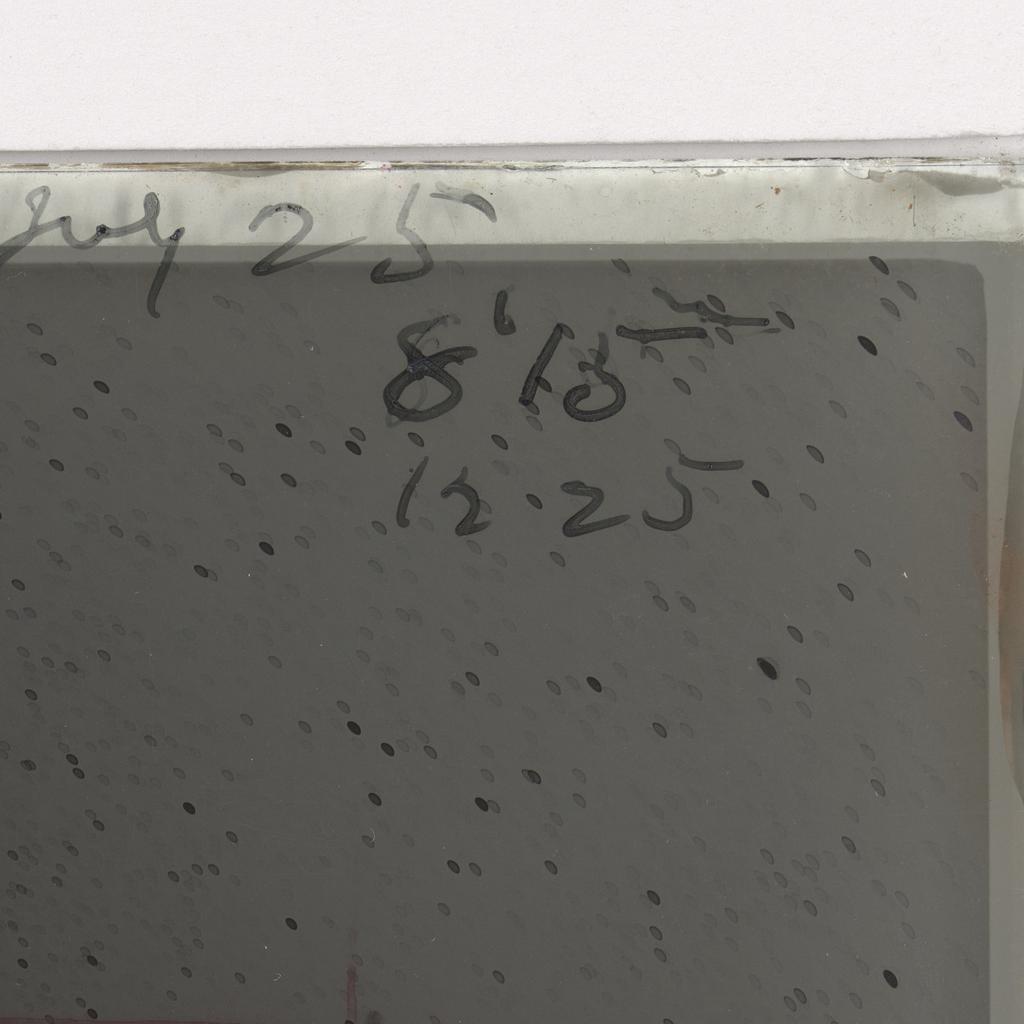 July 25
8
12 25